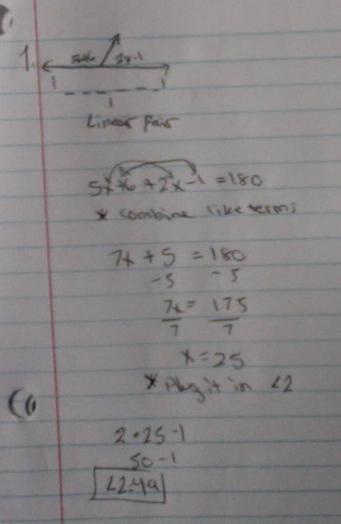 1.
5x+6 2x-1
1 1
1
Linear Pair
5x+6+2x-1=180
* combine like terms
7x+5=180
-5 -5
7x = 175
7 7
x=25
* Plug it in ∠2
2•25-1
50-1
∠2=49